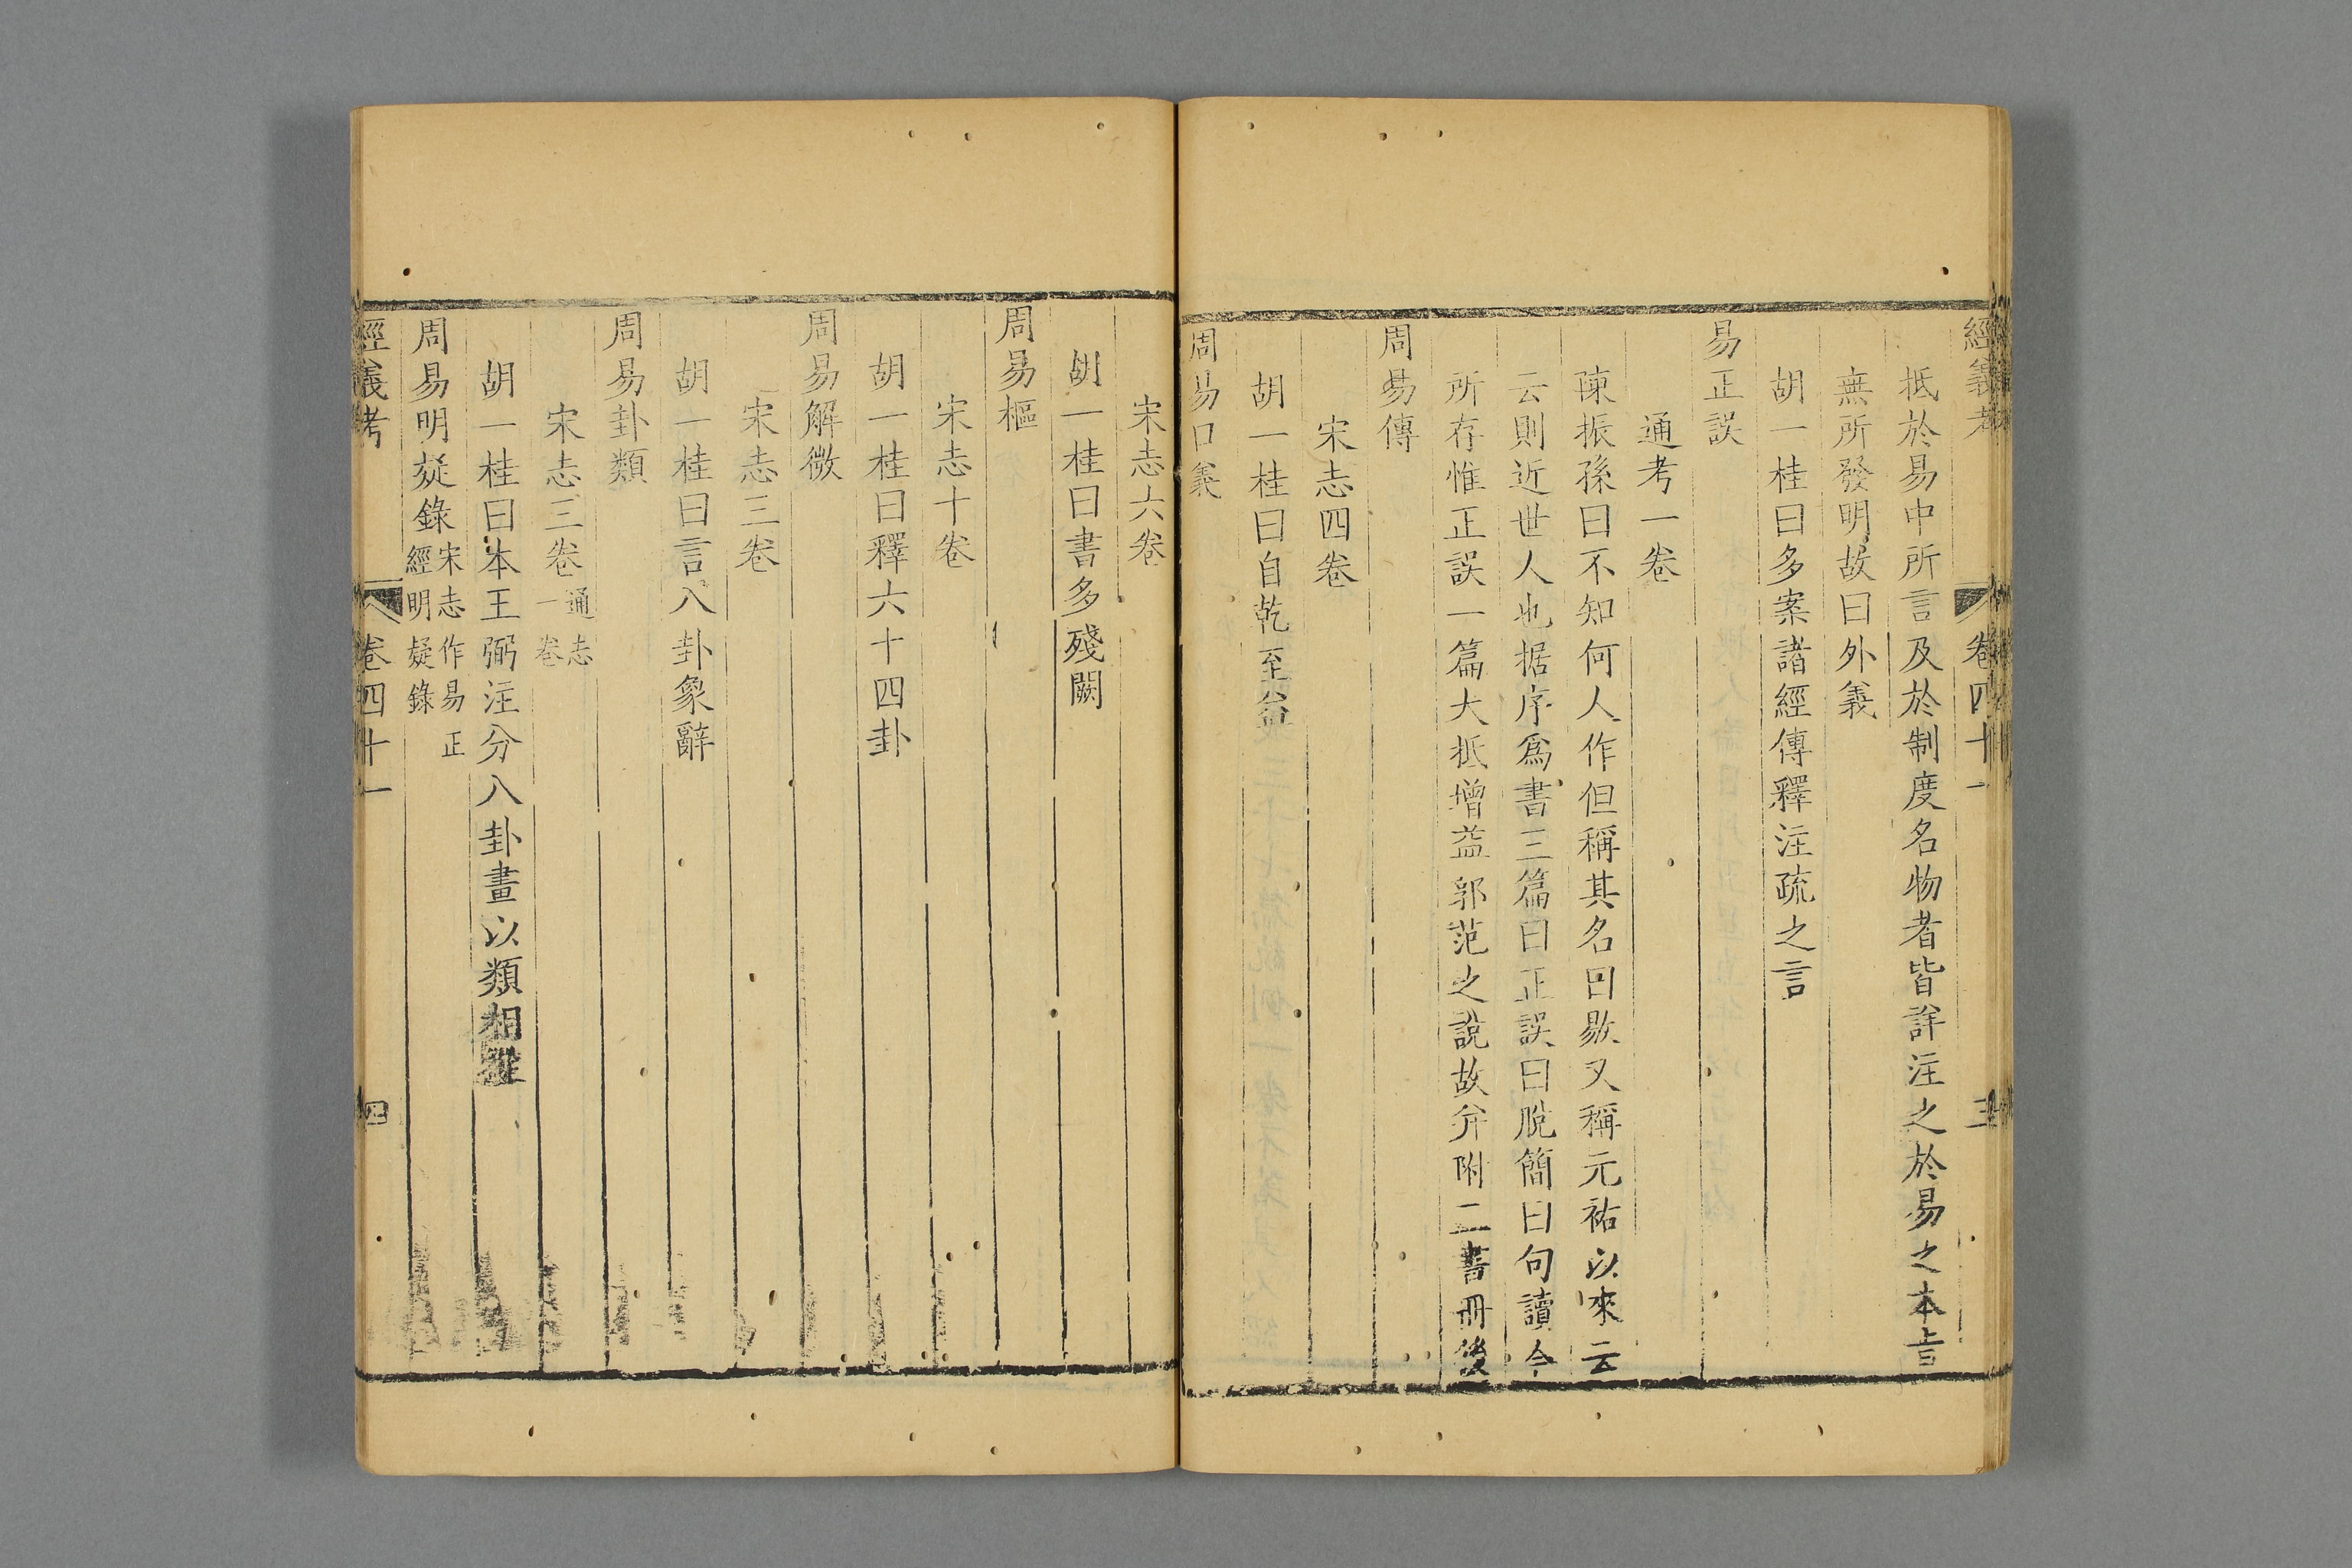 經義考 卷四十一 三
抵於易中所言及於制度名物者皆詳注之於易之本旨
無所發明故曰外義
胡一桂曰多案諸經傳釋注疏之言
易正誤
通考一卷
陳振孫曰不知何人作但稱其名曰歇又稱元祐以來云
云則近世人也据序爲書三篇曰正誤曰脫簡曰句讀今
所存惟正誤一篇大抵增益郭范之說故并附二書冊後
周易傳
宋志四卷
胡一桂曰自乾至益
周易口義
宋志六卷
胡一桂曰書多殘闕
周易樞
宋志十卷
胡一桂曰釋六十四卦
周易解微
宋志三卷
胡一桂曰言八卦象辭
周易卦類
宋志三卷通志一卷
胡一桂曰本王弼注分八卦畫以類相從
周易明疑錄宋志作易正經明疑錄
經義考 卷四十一 四